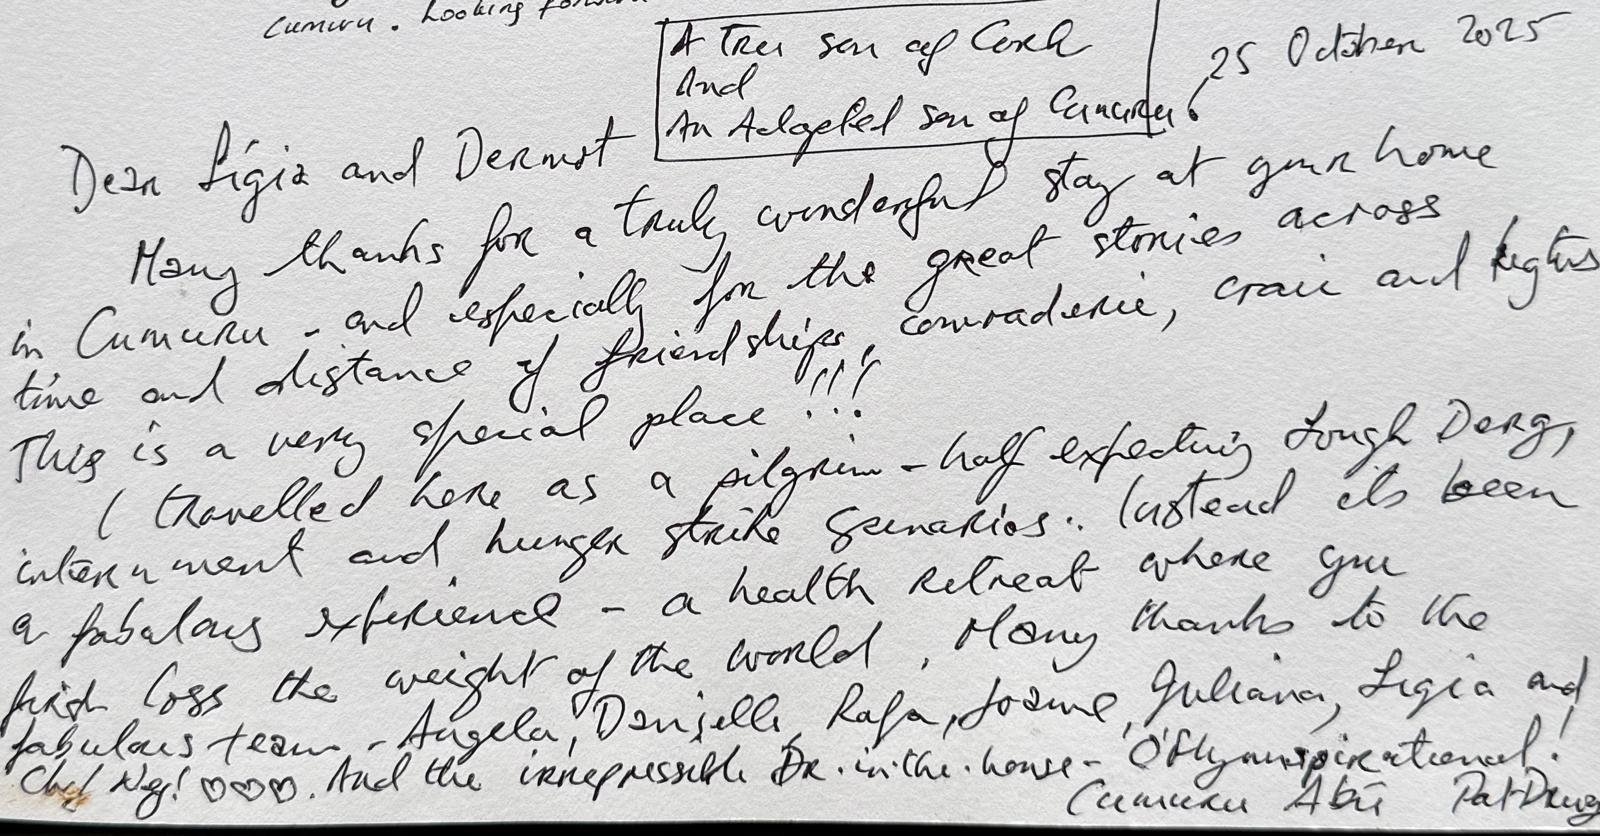 Cumuru. Looking forward
A True son of Cork
And
An Adopted son of Cumuru!
25 October 2025
Dear Lígia and Dermot
Many thanks for a truly wonderful stay at your home
in Cumuru - and especially for the great stories across
time and distance of friendships, comraderie, craic and
This is a very special place!!!
I travelled here as a pilgrim - half expecting Lough Derg,
internment and hunger strike scenarios.. Instead its been
a fabulous experience - a health retreat where you
first loss the weight of the world. Many thanks to the
fabulous team - Angela, Danielle, Rafa, Joanne, Juliana, Ligia and
Chef ♡♡♡. And the irrepressible Dr.-in-the-house - O'Flynnspirational!
Cumuru Abú Pat